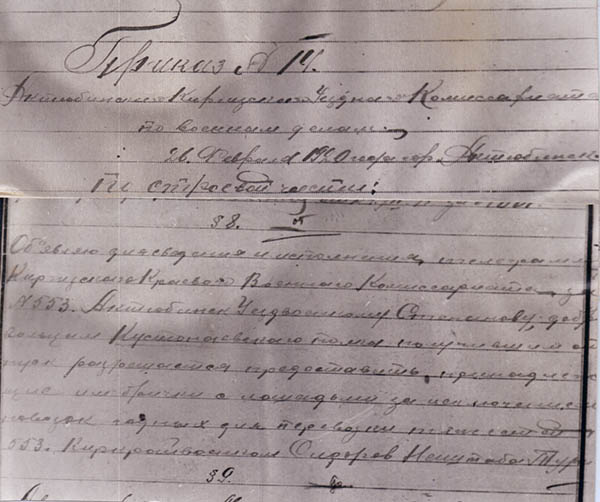 Приказ № 14.
Актюбинского Киргизского Уездного Комиссариата
по военным делам.
26 Февраля 1920 года гор. Актюбинск.
По строевой части:
§ 8.
Объявляю для сведения и исполнения, телеграмму
Киргизского Краевого Военного Комиссариата, за
№ 553. Актюбинск Уездвоенкому добро
вольцам Кустанайского полка получившим от
пуск разрешается предоставить, принадлежа
щие им брички с лошадьми за исключением
повозок годных для перевозки
553. Сидоров Наштаба
§ 9.